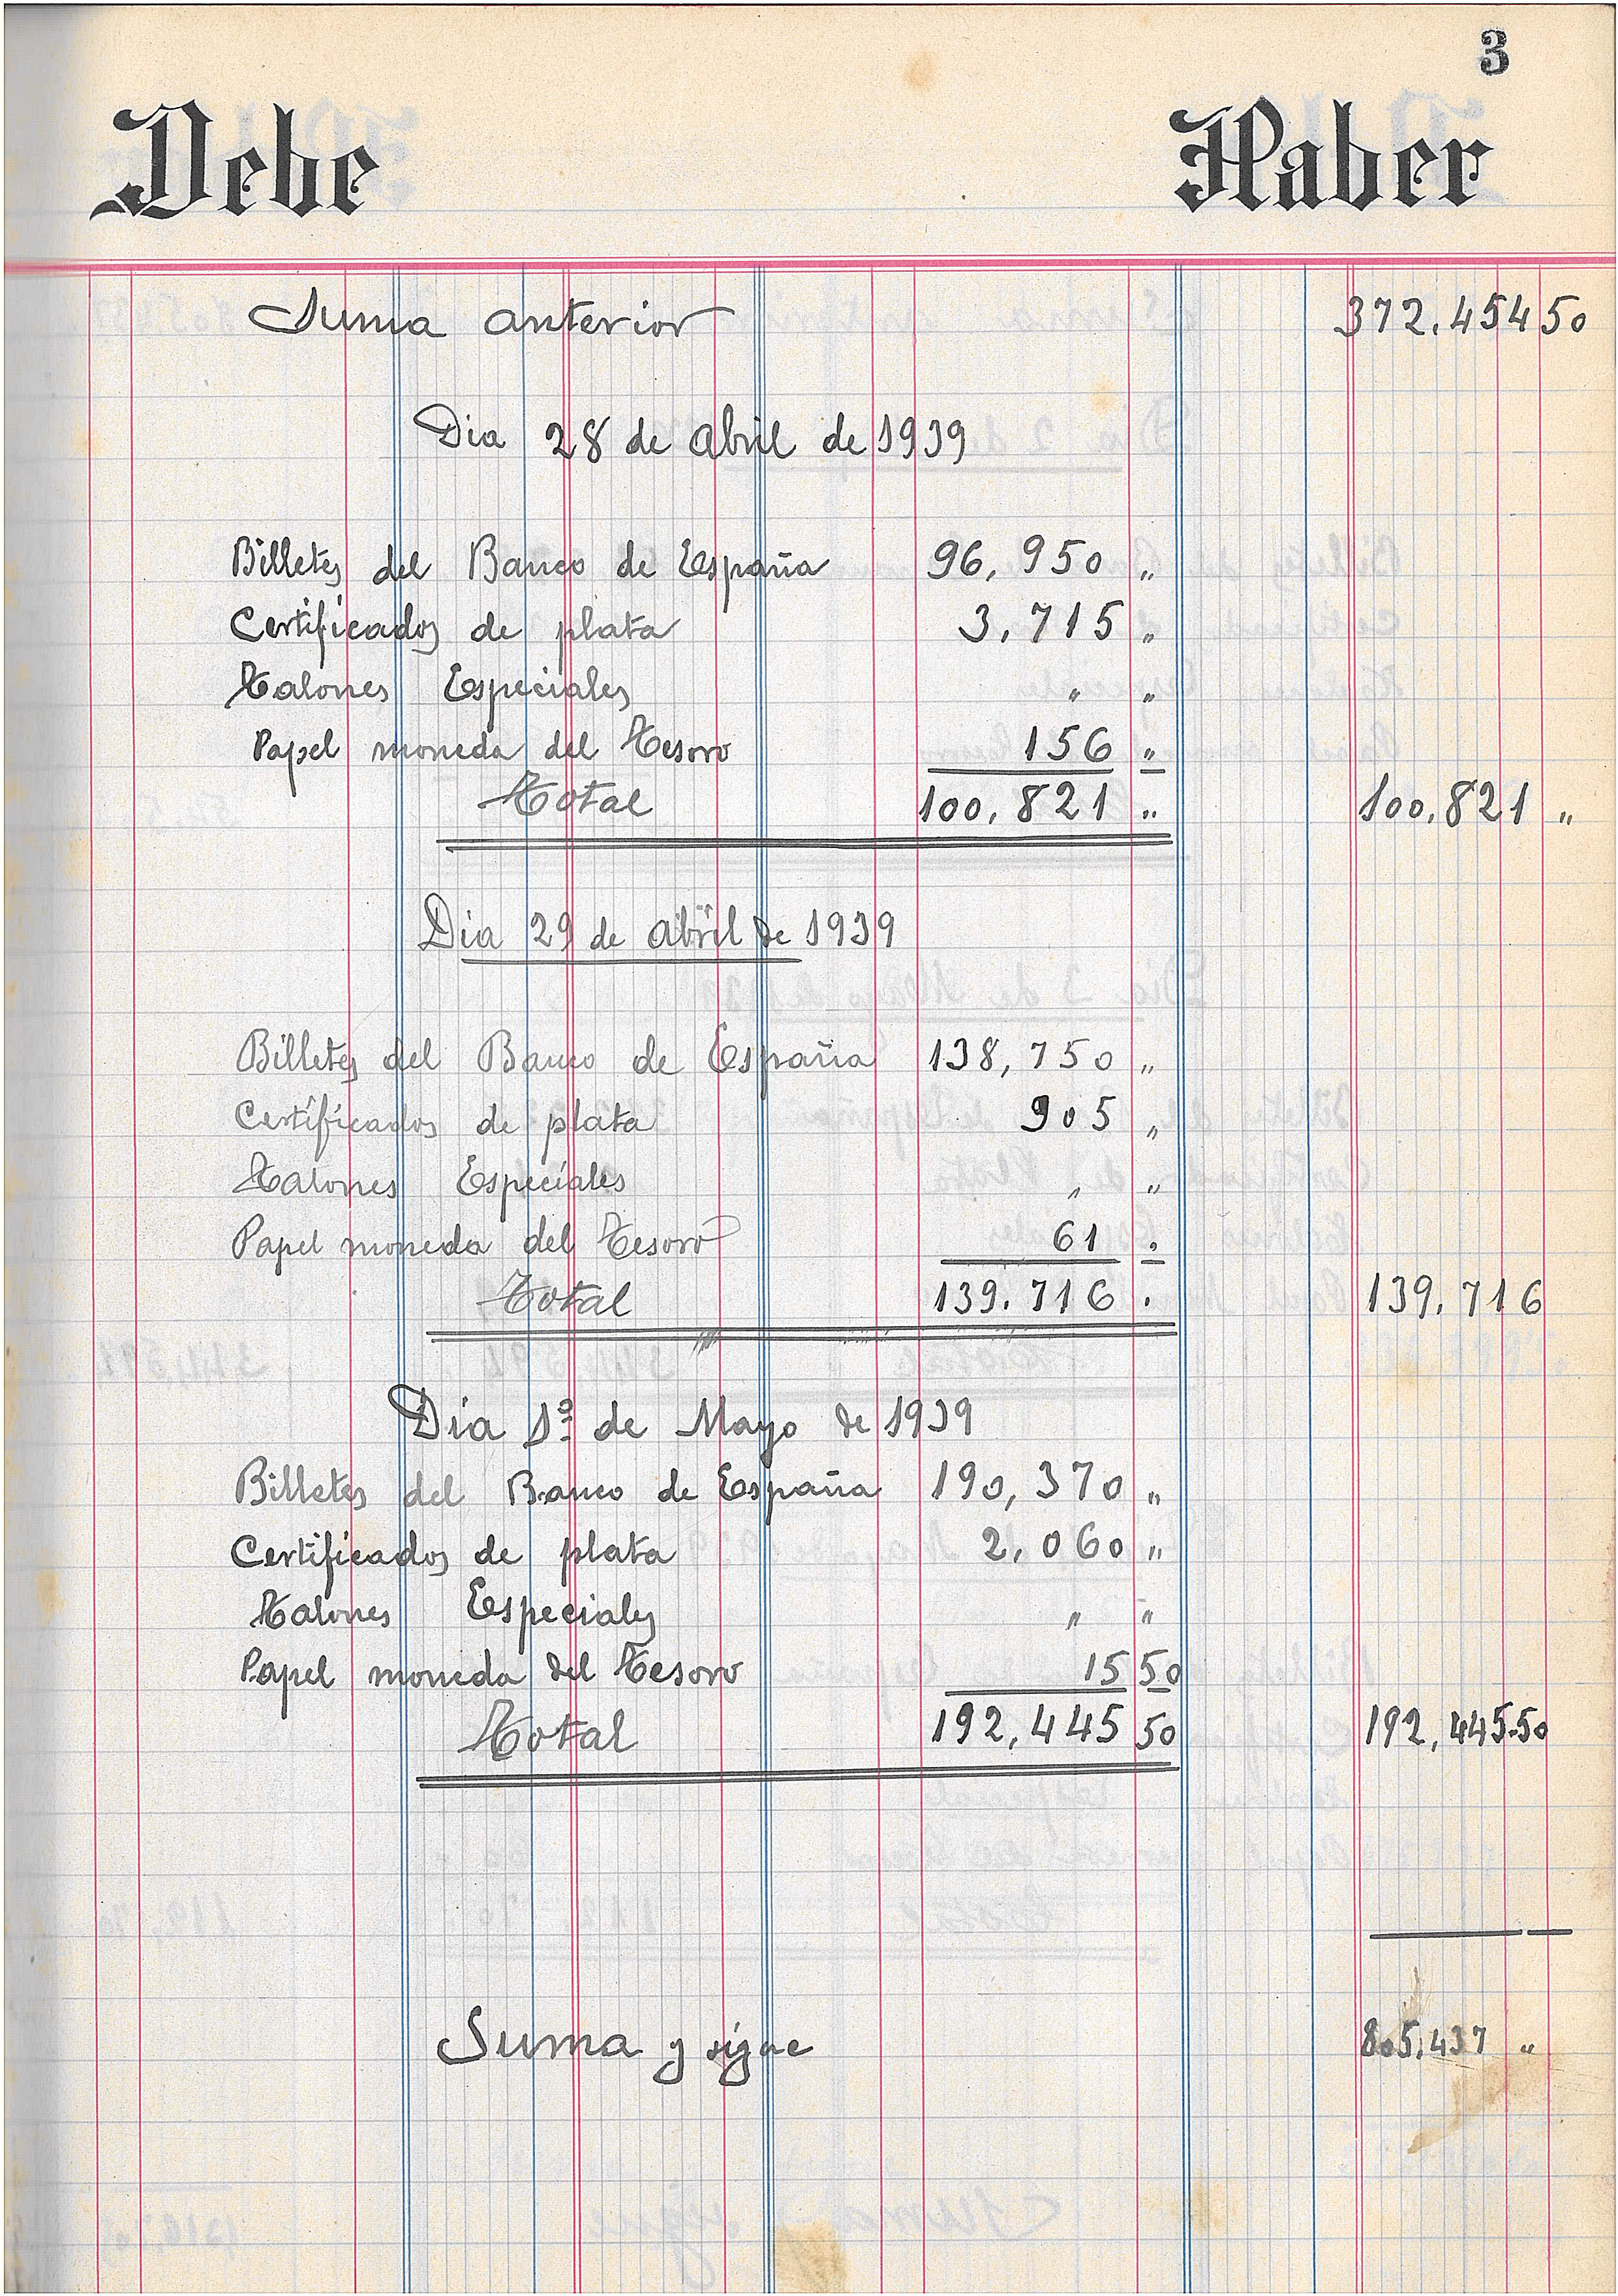 3
Debe Haber
Suma anterior 372.454 50
Dia 28 de abril de 1939
Billetes del Banco de España 96,950 "
Certificados de plata 3.715 "
Talones Especiales " "
Papel moneda del Tesoro 156 "
Total 100,821 " 100.821 "
Dia 29 de abril de 1939
Billetes del Banco de España 138,750 "
Certificados de plata 905 "
Talones Especiales " "
Papel moneda del Tesoro 61 "
Total 139.716 . 139.716
Dia 1º de Mayo de 1939
Billetes del Banco de España 190,370 "
Certificados de plata 2,060 "
Talones Especiales " "
Papel moneda del Tesoro 15 50
Total 192,445 50 192,445.50
Suma y sigue 805.437 "